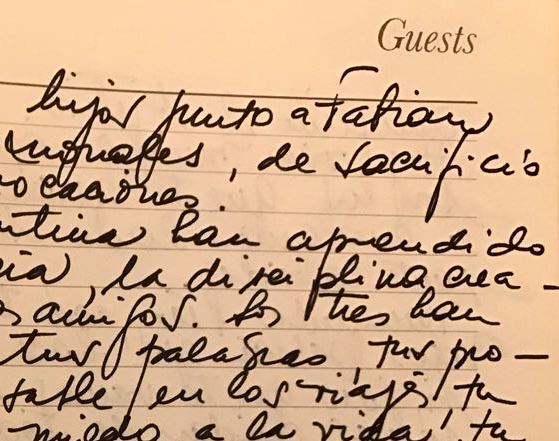 Guests
hijos junto a Fabian
, de sacrificio
ocaciones.
ntina han aprendido
cia, la disciplina crea-
s amigos. Los tres han
tus palabras, tus pro-
table en los viajes, tu
miedo a la vida, tu